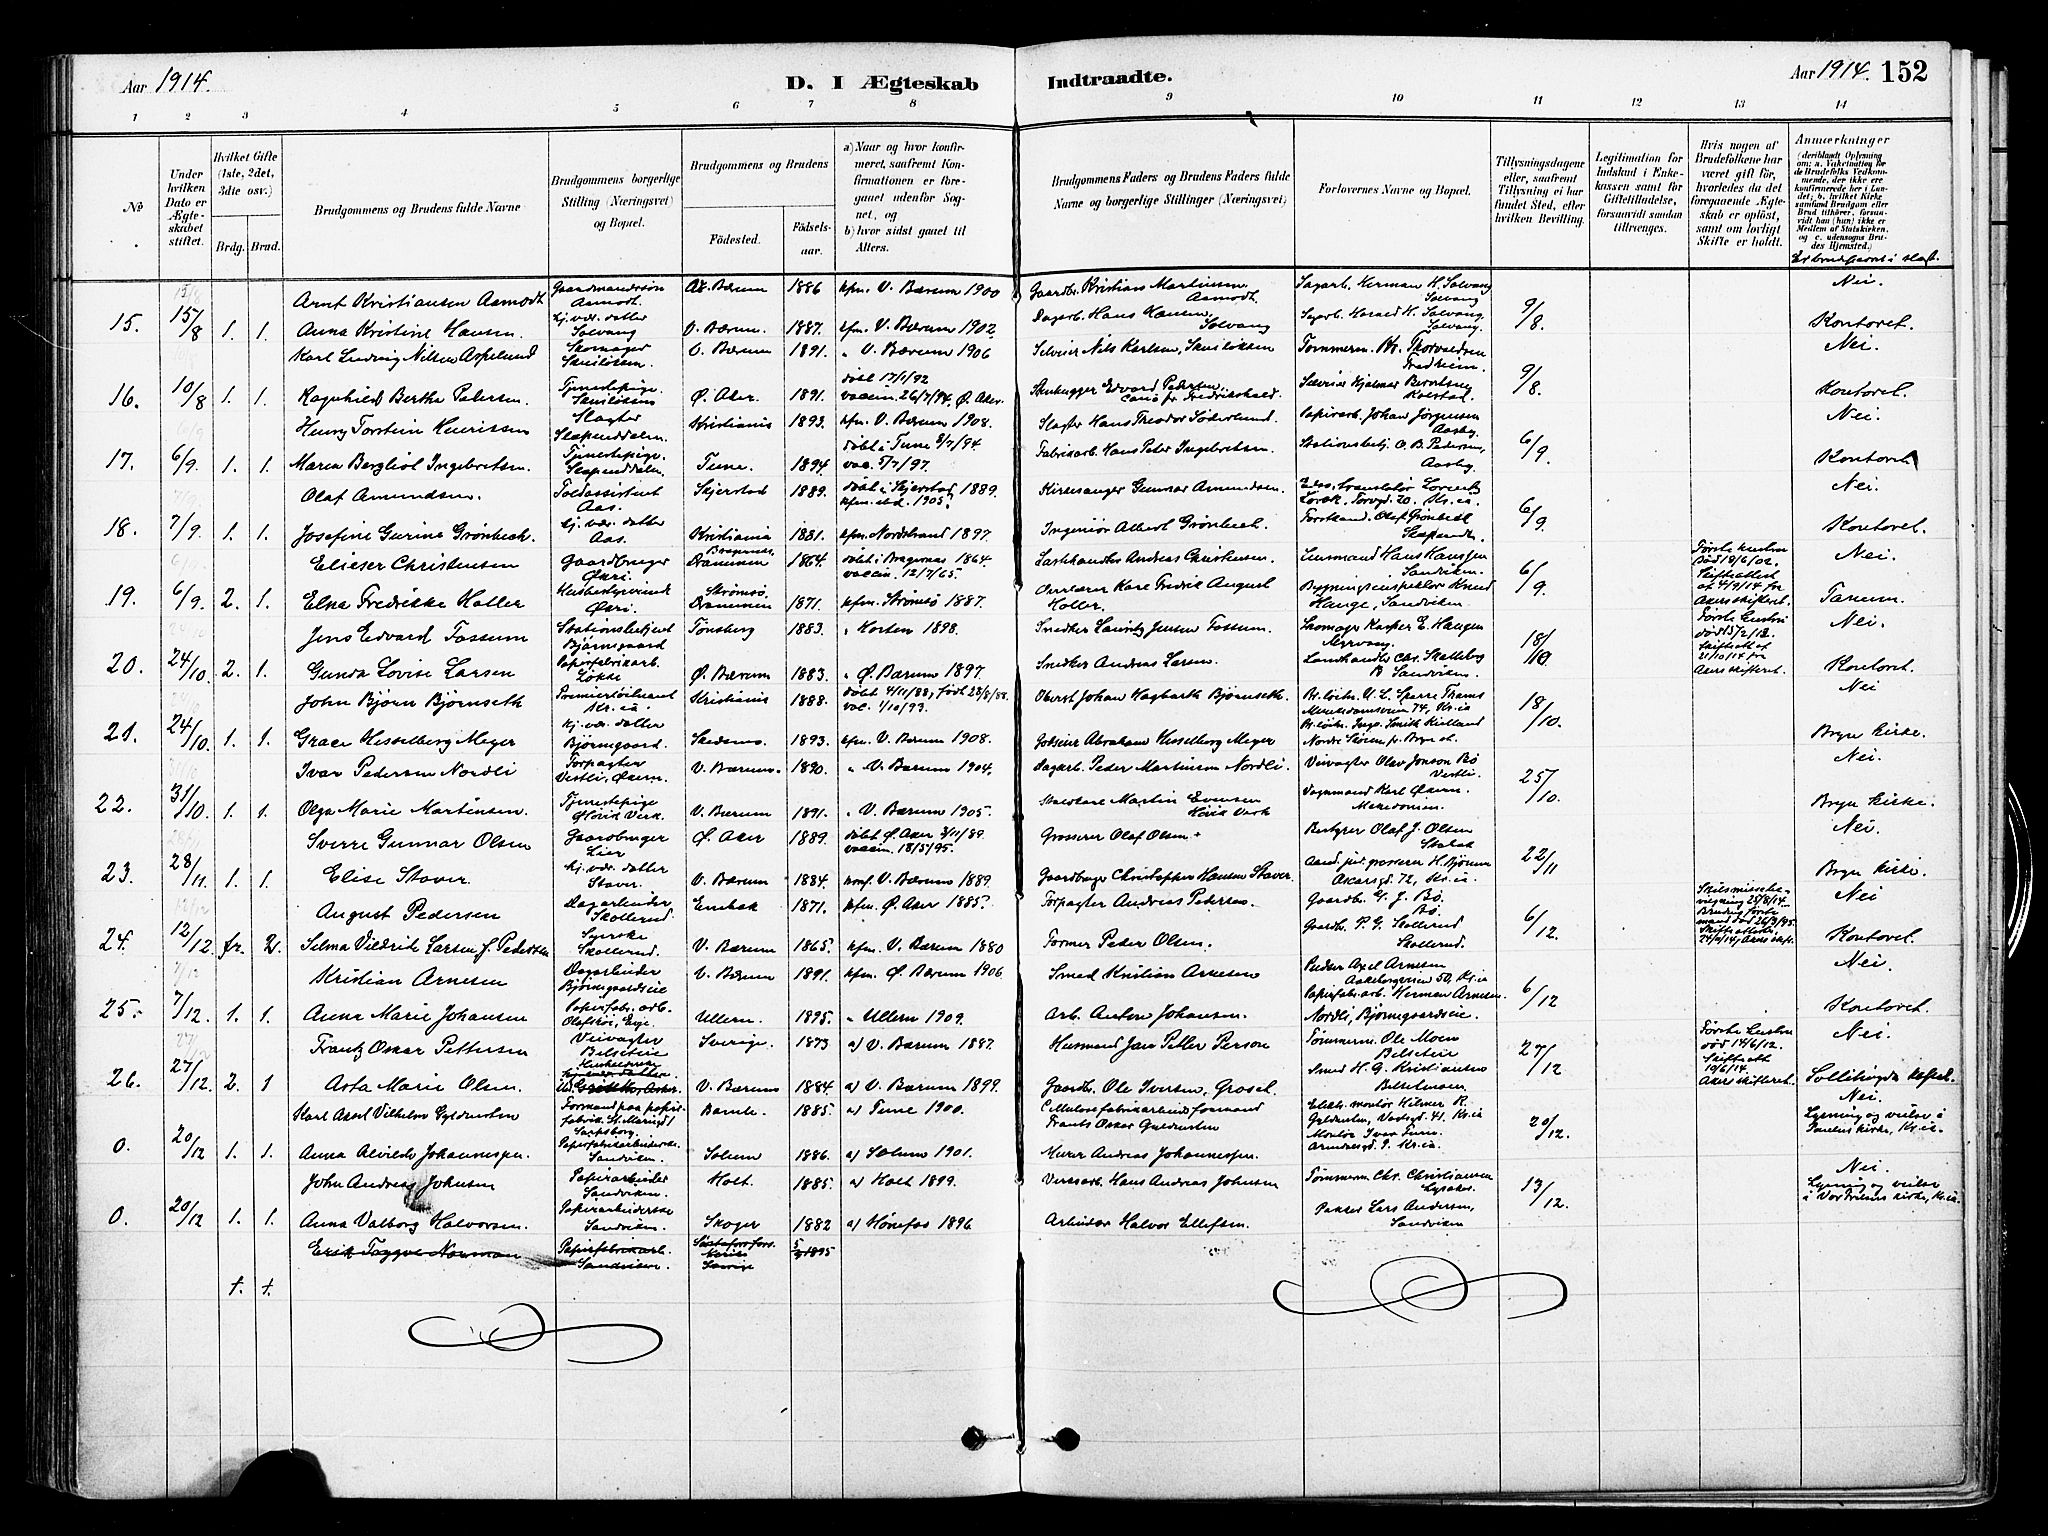 Aar 1914.
D. I Ægteskab Indtraadte.
Aar 1914. 152
1 2 3 4 5 6 7 8 9 10 11 12 13 14
No
Under hvilken Dato er Ægteskabet stiftet.
Hvilket Gifte (1ste, 2det, 3die osv.)
Brdg. Brud.
Brudgommens og Brudens fulde Navne
Brudgommens borgerlige Stilling (Næringsvei) og Bopæl.
Brudgommens og Brudens
Fødested.
Fødselsaar.
a) Naar og hvor konfirmeret, saafremt Konfirmationen er foregaaet udenfor Sognet, og
b) hvor sidst gaaet til Alters.
Brudgommens Faders og Brudens Faders fulde Navne og borgerlige Stillinger (Næringsvei)
Forlovernes Navne og Bopæl.
Tillysningsdagene eller, saafremt Tillysning ei har fundet Sted, efter hvilken Bevilling.
Legitimation for Indskud i Enkekassen samt for Giftetilladelse, forsaavidt saadan trænges.
Hvis nogen af Brudefolkene har været gift før, hvorledes da det foregaaende Ægteskab er opløst, samt om lovligt Skifte er holdt.
Anmærkninger
(deriblandt Oplysning om: a. Vakcination for de Brudefolks Vedkommende, der ikke ere konfirmerede her i Landet; b. hvilket Kirkesamfund Brudgom eller Brud tilhører, forsaavidt han (hun) ikke er Medlem af Statskirken, og c. udensogns Brudes Hjemsted.)
Arnt Kristiansen Aamodt Gaardmandssøn Aamodt. V. Bærum 1886 kfm. V. Bærum 1900 Gaardbr. Kristian Martinsen Aamodt Sagarb. Herman H. Solvang Solvang Nei.
15. 15/8 1. 1. Anna Kristine Hansen. hj. vær. datter Solvang V. Bærum. 1887. kfm. V. Bærum 1902. Dagarb. Hans Hansen, Solvang Sagarb. Harald H. Solvang, Solvang. 9/8 Kontoret.
Karl Ludvig Nilsen Aspelund Skomager V. Bærum 1891. " V. Bærum 1906 Nils Karlsen, Tømmerm. Kr. Thorvaldsen Fredheim Nei.
16. 10/8 1. 1. Ragnhild Bertha Pedersen. Tjenestepige Ø. Aker. 1891. døbt 17/1/92 vaccin. 26/7/94. Ø. Aker. Stenhugger Edvard Pedersen Hjalmar 9/8 Kontoret.
Henry Torstein Henrissen Slagter Skapenddalen. Kristiania 1893. kfm. V. Bærum 1908. Slagter Hans Theodor Söderlund Papirarb. Johan Jörgensen Aasby. Nei.
17. 6/9. 1. 1. Maren Bergliot Ingebretsen. Tjenestepige. Skapenddalen. Tune. 1894 døbt i Tune 8/7/94. vac. 5/7/97. Fabrikarb. Hans Peter Ingebretsen. Stationsbetj. O. B. Pedersen, Aasby. 6/9. Kontoret
Olaf Amundsen. Toldassistent Aas. Skjerstad 1889. døbt i Skjerstad 1889. kfm. std. 1905. Kirkesanger Gunnar Amundsen. Torvgd. 20. Kr.ia Nei.
18. 7/9. 1. 1. Josefine Gurine Grønbech. hj. vær. datter Aas. Kristiania 1881. kfm. Nordstrand 1897. Ingeniör Albert Grønbech. Forstkand. Olaf Grønbech 6/9 Kontoret.
Elieser Christensen Gaardbruger Økri. Bragernes Drammen 1864. døbt i Bragernæs 1864. vaccin. 12/7/65. Andreas Christensen. Lensmand Hans Hansen Sandviken. Første hustru død 18/6/02. Skifteattest af 4/9/14 fra Akers skifteret. Nei.
19. 6/9. 2. 1. Elna Fredrikke Holler Økri Strømsø Drammen 1871. kfm. Strømsö 1887. Overlærer Karl Fredrik August Holler. Bygningsinspektør Knud Hauge, Sandviken. 6/9 Tanum.
Jens Edvard Fossum Stationsbetjent Bjørnegaard Tønsberg 1883. " Horten 1898. Snedker Lauritz Jensen Fossum. Skomager Kasper E. Haugen Første hustru død 15/2/13. Skifteatt af 21/10/14 fra Akers skifteret. Nei.
20. 24/10. 2. 1. Gunda Lovise Larsen Papirfabrikarb. Løkke Ø. Bærum 1883. " Ø. Bærum 1897. Snedker Andreas Larsen. Landhandler Chr. Skalleberg B. Sandviken. 18/10 Kontoret.
John Bjørn Bjørnseth Premierløitnant Kr.ia. Kristiania 1888. døbt 4/11/88, født 23/8/88. vac. 1/10/93. Oberst Johan Hagbarth Bjørnseth. Pr.løitn. U. L. Sparre Thams 74, Kr.ia Nei
21. 24/10. 1. 1. Grace Hesselberg Meyer hj. vær. datter Bjørnegaard. Skedsmo. 1893. kfm. V. Bærum 1908. Godseier Abraham Hesselberg Meyer Pr.løitn. Smith Kielland 18/10. Bryn kirke.
Ivar Pedersen Nordli Forpagter Vestli, V. Bærum. 1890. " V. Bærum 1904. Dagarb. Peder Martinsen Nordli. Veivogter Olav Jonson Bø Vestli. Nei.
22. 31/10. 1. 1. Olga Marie Martinsen. Tjenestepige V. Bærum 1891. " V. Bærum 1905. Staldkarl Martin Evensen Vognmand Karl 25/10. Bryn kirke.
Sverre Gunnar Olsen Gaardbruger Lier Ø. Aker 1889. døbt Ø. Aker 3/11/89. vaccin. 18/5/95. Grosserer Olaf Olsen Bestyrer Olaf J. Olsen Nei.
23. 28/11. 1. 1. Elise Staver. hj. vær. datter Staver. V. Bærum 1884. konf. V. Bærum 1889. Gaardbruger Christopher Hansen Staver. Oskarsgd. 72, Kr.ia. 22/11 Bryn kirke.
August Pedersen Dagarbeider Skollerud Enebak 1871. kfm. Ø. Aker 1885. Forpagter Andreas Pedersen. Gaardbr. G. J. Bø. Bø Skilsmissebevilgning 28/8/14. Nei
24. 12/12. fr. 2. Selma Vildrid Larsen f. Pedersen Skollerud. V. Bærum 1865. kfm. V. Bærum 1880 Former Peder Olsen. Gaardbr. P. G. Skollerud Skollerud. 6/12. Kontoret.
Kristian Arnesen Dagarbeider Bjørnegaardseie V. Bærum 1891. kfm. Ø. Bærum 1906. Smed Kristian Arnesen Pudser Axel Arnesen 50, Kr.ia Nei.
25. 7/12. 1. 1. Anna Marie Johansen Papirfabr. arb. Ullern. 1895. " Ullern 1909. Arb. Anton Johansen. Papirfabr.arb. Herman Arnesen. Nordli, Bjørnegaardseie. 6/12 Kontoret.
Frantz Oskar Pettersen Veivogter Belseteie Sverige. 1873 a) V. Bærum 1887. Husmand Jan Petter Person Tømmerm. Ole Moen Belseteie Første hustru død 14/6/12. Skifteatt 10/6/14. Aker skifteret. Nei.
26. 27/12. 2. 1 Asta Marie Olsen. V. Bærum 1884. a) V. Bærum 1899. Gaardbr. Ole Iversen, Grosel. Smed H. G. Kristiansen 27/12 Sollihøgda kapel.
Karl Axel Vilhelm Gyldensten Formand paa papirfabrik. Sarpsborg. Bamle. 1885. a) Tune 1900. Cellulosefabrikarbeidsformand Frants Oskar Gyldensten Elektr. montør Hilmer R. Gyldensten, 41. Kr.ia Nei.
0. 20/12 1. 1. Anna Alvilde Johannessen. Papirfabrikarbeiderske. Sandviken. Solum 1886. a) Solum 1901. Murer Andreas Johannessen. Montør Ivar 20/12. Lysning og vielse i Paulus kirke, Kr.ia.
John Andreas Johnsen Papirarbeider Sandviken. Holt. 1885. a) Holt 1899. Verksarb. Hans Andreas Johnsen Tømmerm. Chr. Christiansen Lysaker. Nei.
0. 20/12 1. 1. Anna Valborg Halvorsen. Papirarbeiderske Sandviken. Skoger 1882 a) Hönefos 1896 Arbeider Halvor Ellefsen. Pakker Lars Andersen, Sandviken 13/12. Lysning og vielse i Vor Frelsers kirke, Kr.ia.
Erik Tryggve Norman Papirfabrikarb. Sandviken. Sverige 5/9 1895
1. 1.